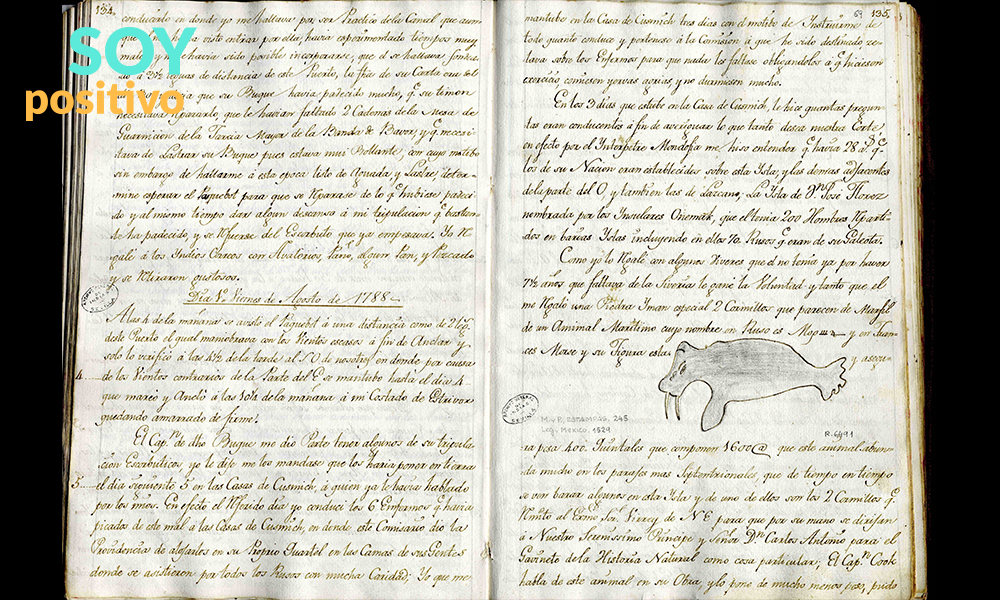 SOY
positivo
134.
conducirlo en donde yo me hallava por ser Practico de la Canal que aun
que yo le havia visto entrar por ella, havia experimentado tiempos muy
malos y no le havia sido posible incorporarse, que el se hallava fondea
do á 2½ leguas de distancia de este Puerto, la fha de su Carta era del
que su Buque havia padecido mucho, q.e su timon
necesitava repararlo, que le havian faltado 2 Cadenas de la Mesa de
Guarnicion de la Jarcia Mayor de la Banda de Bavor, y q.e necesi
tava de Lastrar su Buque pues estava mui Bollante, con cuyo motibo
sin embargo de hallarme á esta epoca listo de Aguada, y Lastre, deter
miné esperar el Paquebot para que se reparase de lo q.e hubiese padeci
do y al mismo tiempo dar algun descanso á mi tripulacion q.e bastan
te ha padecido, y se repuerse del Escorbuto que ya empesava. Yo re
galé á los Indios Oarcos con Avalorios, Paño, algun Pan, y Pezcado
y se retiraron gustosos.
Dia 1.º Viernes de Agosto de 1788
A las 4 de la mañana se avistó el Paquebot á una distancia como de 2 leg.s
deste Puerto el qual maniobrava con los vientos escasos á fin de Anclar y
solo lo verificó á las 4½ de la tarde al SO de nosotros en donde por causa
4 de los Vientos contrarios de la Parte del E se mantubo hasta el dia 4
que mareó y Ancló á las 10¾ de la mañana á mi Costado de Estrivor
quedando amarrado de firme.
El Cap.n de dho Buque me dio Parte tener algunos de su tripula
cion Escorbuticos, yo le dije me los mandase que los haria poner en tierra
5 el dia siguiente 5 en las Casas de Cusmich, á quien ya le havia hablado
por los mios. En efecto el referido dia yo conduci los 6 Enfermos q.e havia
picados de este mal á las Casas de Cusmich, en donde este Comisario dio la
Providencia de alojarlos en su Proprio Quartel en las Camas de sus Gentes
donde se asistieron por todos los Rusos con mucha Caridad; Yo que me
69 135.
mantube en la Casa de Cusmich tres dias con el motibo de Instruirme de
todo quanto conduce y pertenese á la Comision á que he sido destinado ze
lava sobre los Enfermos para que nada les faltase obligandolos á q.e hiciesen
exercicio, comiesen yervas agrias, y no durmiesen mucho.
En los 3 dias que estube en la Casa de Cusmich, le hice quantas pregun
tas eran conducentes á fin de averiguar lo que tanto desea nuestra Corte,
en efecto por el Interprete Mondofia me hiso entender q.e havia
los de su Nacion eran establecidos sobre esta Ysla, y las demas adjacentes
de la parte del O y tambien las de Lazcano; La Ysla de D.n José Florez
nombrada por los Insulares Onemak, que el tenia 200 Hombres reparti
dos en barias Yslas incluyendo en ellos 70 Rusos q.e eran de su Galeota.
Como yo lo regalé con algunos Viveres que el no tenia ya por haver
7½ años que faltava de la Siveria le gané la Voluntad y tanto que el
me regaló una Piedra Iman especial 2 Cormillos que parecen de Marfil
de un Animal Maritimo cuyo nombre en Ruso es y en Fran
ces Morse y su Figura esta y, asegu
M. y P., ESTAMPAS, 245
Leg. Mexico, 1529
R. 6491
ra pesa 400 Quintales que componen 1600@ que este animal abun
da mucho en los parajes mas Septentrionales, que de tiempo en tiempo
se ven barar algunos en esta Ysla y de uno de ellos son los 2 Cormillos q.e
remito al Exmo Sor. Virrey de N.E para que por su mano se dirijan
á Nuestro Serenissimo Principe y Señor D.n Carlos Antonio para el
Gavinete de la Historia Natural como cosa particular; El Cap.n Cook
habla de este animal en su Obra, y lo pone de mucho menos peso, pudo